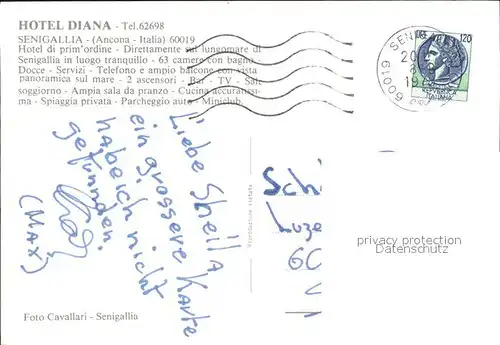 HOTEL DIANA - Tel.62698
SENIGALLIA - (Ancona - Italia) 60019
Hotel di prim'ordine - Direttamente sul lungomare di
Senigallia in luogo tranquillo - 63 camere con bagno -
Docce - Servizi - Telefono e ampio balcone con vista
panoramica sul mare - 2 ascensori - Bar - TV - Sale
soggiorno - Ampia sala da pranzo - Cucina accuratissi-
ma - Spiaggia privata - Parcheggio auto - Miniclub.
120
60019 SENI
REPUBBLICA
ITALIANA
Liebe Sheila,
ein grossere Karte
habe ich nicht
gefunden.
(MAX)
Schi
Luze
60
privacy protection
Datenschutz
Riproduzione vietata
Foto Cavallari - Senigallia